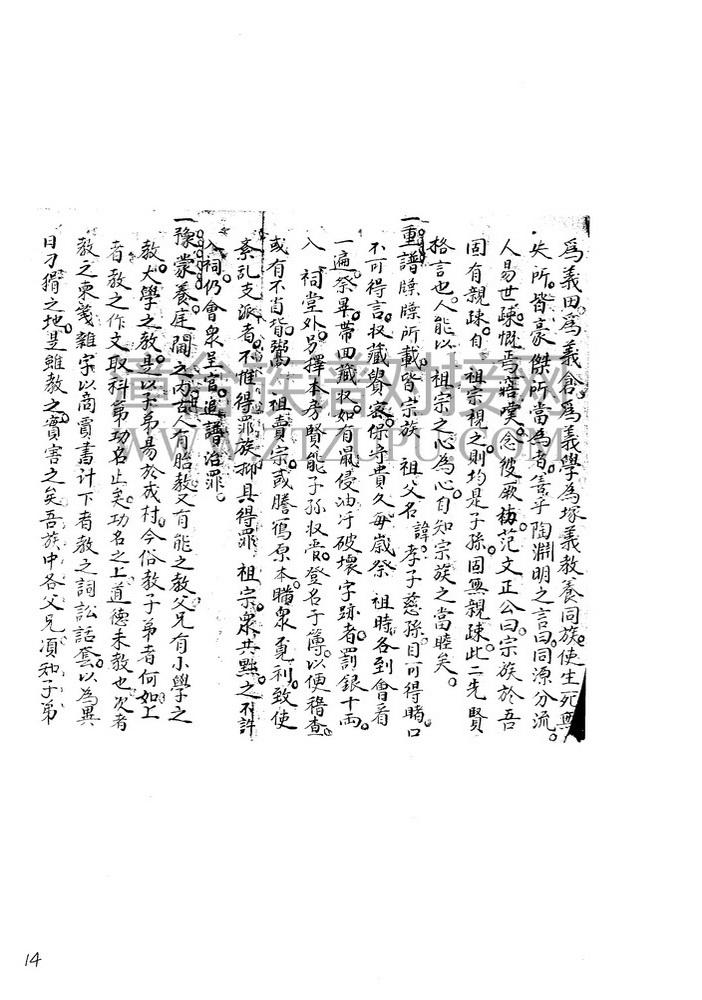 為義田為義倉為義學為塚義教養同族使生死無
失所皆豪傑所當為者善乎陶淵明之言曰同源分流
人易世疎慨焉寤寞念彼厥初范文正公曰宗族於吾
固有親疎自 祖宗視之則均是子孫固無親疎此二先賢
格言也人能以 祖宗之心為心自知宗族之當睦矣
一重譜牒牒所載皆宗族 祖父名諱孝子慈孫目可得睹口
不可得言收藏貴密保守貴久每歲祭 祖時各到會看
一遍祭畢帶回藏收如有鼠侵油汙破壞字跡者罰銀十両
入 祠堂外另擇本房賢能子孫收管登名于簿以便稽查
或有不肖背鬻 祖賣宗或謄寫原本瞞衆覔利致使
紊乱支派者不惟得罪族抑具得罪 祖宗衆共黜之不許
入祠仍會衆呈官追譜治罪
一豫蒙養庭間之內古人有胎教又有能之教父兄有小學之
教大學之教是以子弟易於成材今俗教子弟者何如上
者教之作文取科第功名止矣功名之上道德未教也次者
教之東箋雜字以商賣書計下者教之詞訟話套以為異
日刁猾之地是雖教之實害之矣吾族中各父兄須知子弟
重合族谱对接网
WWW.JTZUPU.COM
14